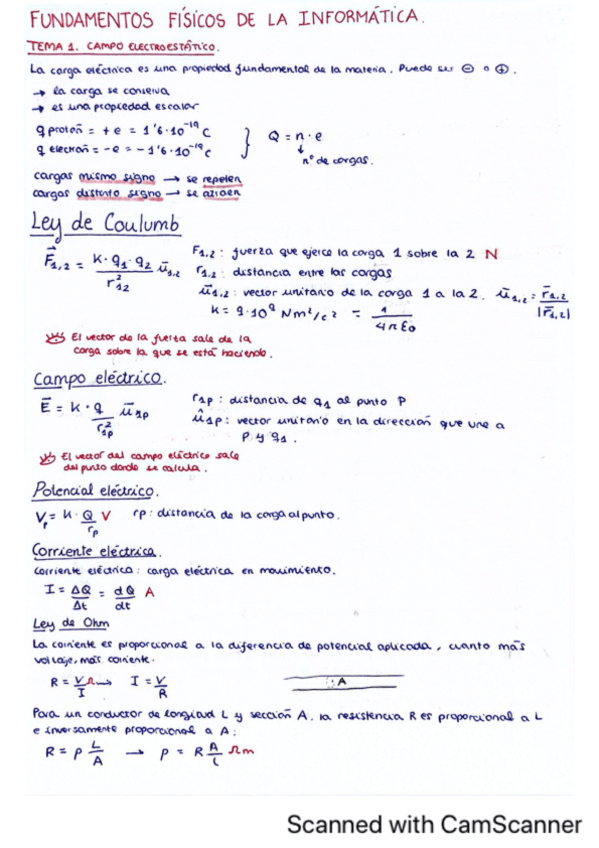 FUNDAMENTOS FÍSICOS DE LA INFORMÁTICA.
TEMA 1. CAMPO ELECTROESTÁTICO.
La carga eléctrica es una propiedad fundamental de la materia. Puede ser ⊖ o ⊕.
→ la carga se conserva
→ es una propiedad escalar
q protón = +e = 1'6·10⁻¹⁹ C
q electrón = -e = -1'6·10⁻¹⁹ C } Q = n·e
↓
nº de cargas.
cargas mismo signo → se repelen
cargas distinto signo → se atraen
Ley de Coulumb
F⃗1,2 = K·q1·q2 / r²12 u⃗1,2
F1,2: fuerza que ejerce la carga 1 sobre la 2 N
r1,2: distancia entre las cargas
u⃗1,2: vector unitario de la carga 1 a la 2. u⃗1,2 = r⃗1,2 / |r⃗1,2|
K = 9·10⁹ Nm²/c² = 1 / 4πε0
El vector de la fuerza sale de la
carga sobre la que se está haciendo.
Campo eléctrico.
E⃗ = K·q / r²1p u⃗1p
r1p: distancia de q1 al punto P
û1p: vector unitario en la dirección que une a
P y q1.
El vector del campo eléctrico sale
del punto donde se calcula.
Potencial eléctrico.
Vp = K·Q / rp V rp: distancia de la carga al punto.
Corriente eléctrica.
Corriente eléctrica: carga eléctrica en movimiento.
I = ΔQ / Δt = dQ / dt A
Ley de Ohm
La corriente es proporcional a la diferencia de potencial aplicada, cuanto más
voltaje, más corriente.
R = V / I Ω → I = V / R
: A
Para un conductor de longitud L y sección A, la resistencia R es proporcional a L
e inversamente proporcional a A:
R = ρ L / A → ρ = R A / L Ωm
Scanned with CamScanner